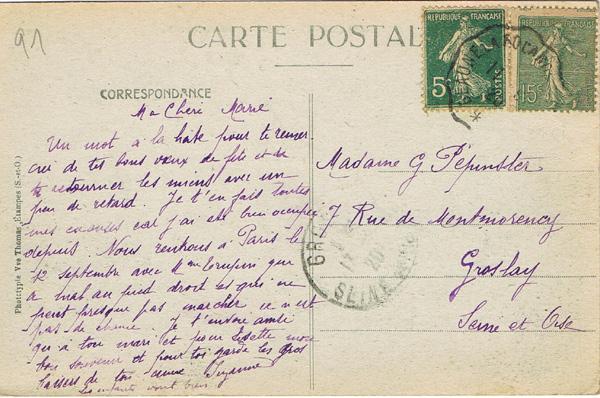 91
CARTE POSTALE
RÉPUBLIQUE FRANÇAISE
5c
POSTES
RÉPUBLIQUE FRANÇAISE
15c
CORRESPONDANCE
Ma Chère Marie
Un mot à la hâte pour te remer-
cier de tes bons vœux de fête et de
te retourner les miens avec un
peu de retard. Je t'en fais toutes
mes excuses car j'ai été bien occupée
depuis. Nous rentrons à Paris le
12 septembre avec Mme que
a mal au pied droit
peut presque pas marcher ce n'est
pas de chance. Je t'envoie ainsi
qu'à ton mari et pour Lisette mon
bon souvenir et pour toi garde les gros
baisers de ton amie Suzanne
les enfants vont bien
Madame G. Pépinster
7 Rue de Montmorency
Groslay
Seine et Oise
SEINE
Phototypie Vve Thomas, Étampes (S.-et-O.)